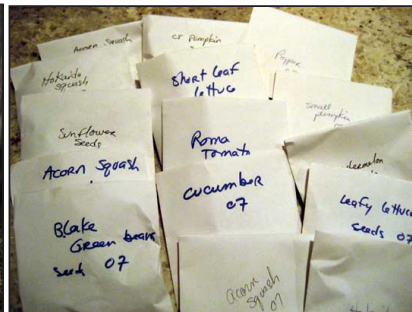 Acorn Squash
Pumpkin
Pepper
Hokaido
squash
Short Leaf
Lettuce
small
pumpkin
Sunflower
Seeds
Roma
Tomato
Acorn Squash
Cucumber
07
Leafy Lettuce
Seeds 07
Blake
Green beans
seeds 07
acorn
squash
07